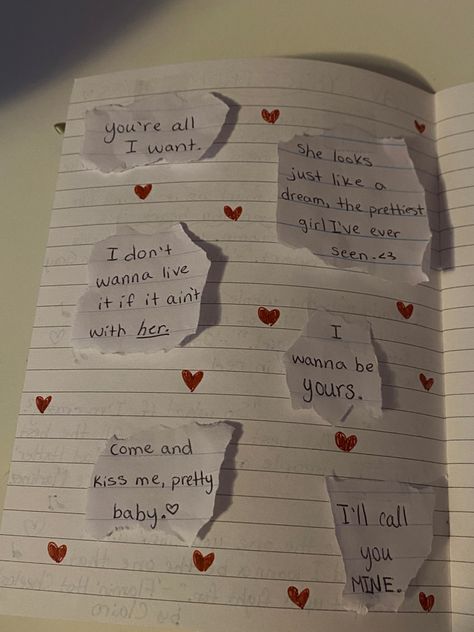 you're all
I want.
she looks
just like a
dream, the prettiest
girl I've ever
seen.<3
I don't
wanna live
it if it ain't
with her.
I
wanna be
yours.
Come and
kiss me, pretty
baby.♡
I'll call
you
MINE.
by Clairo